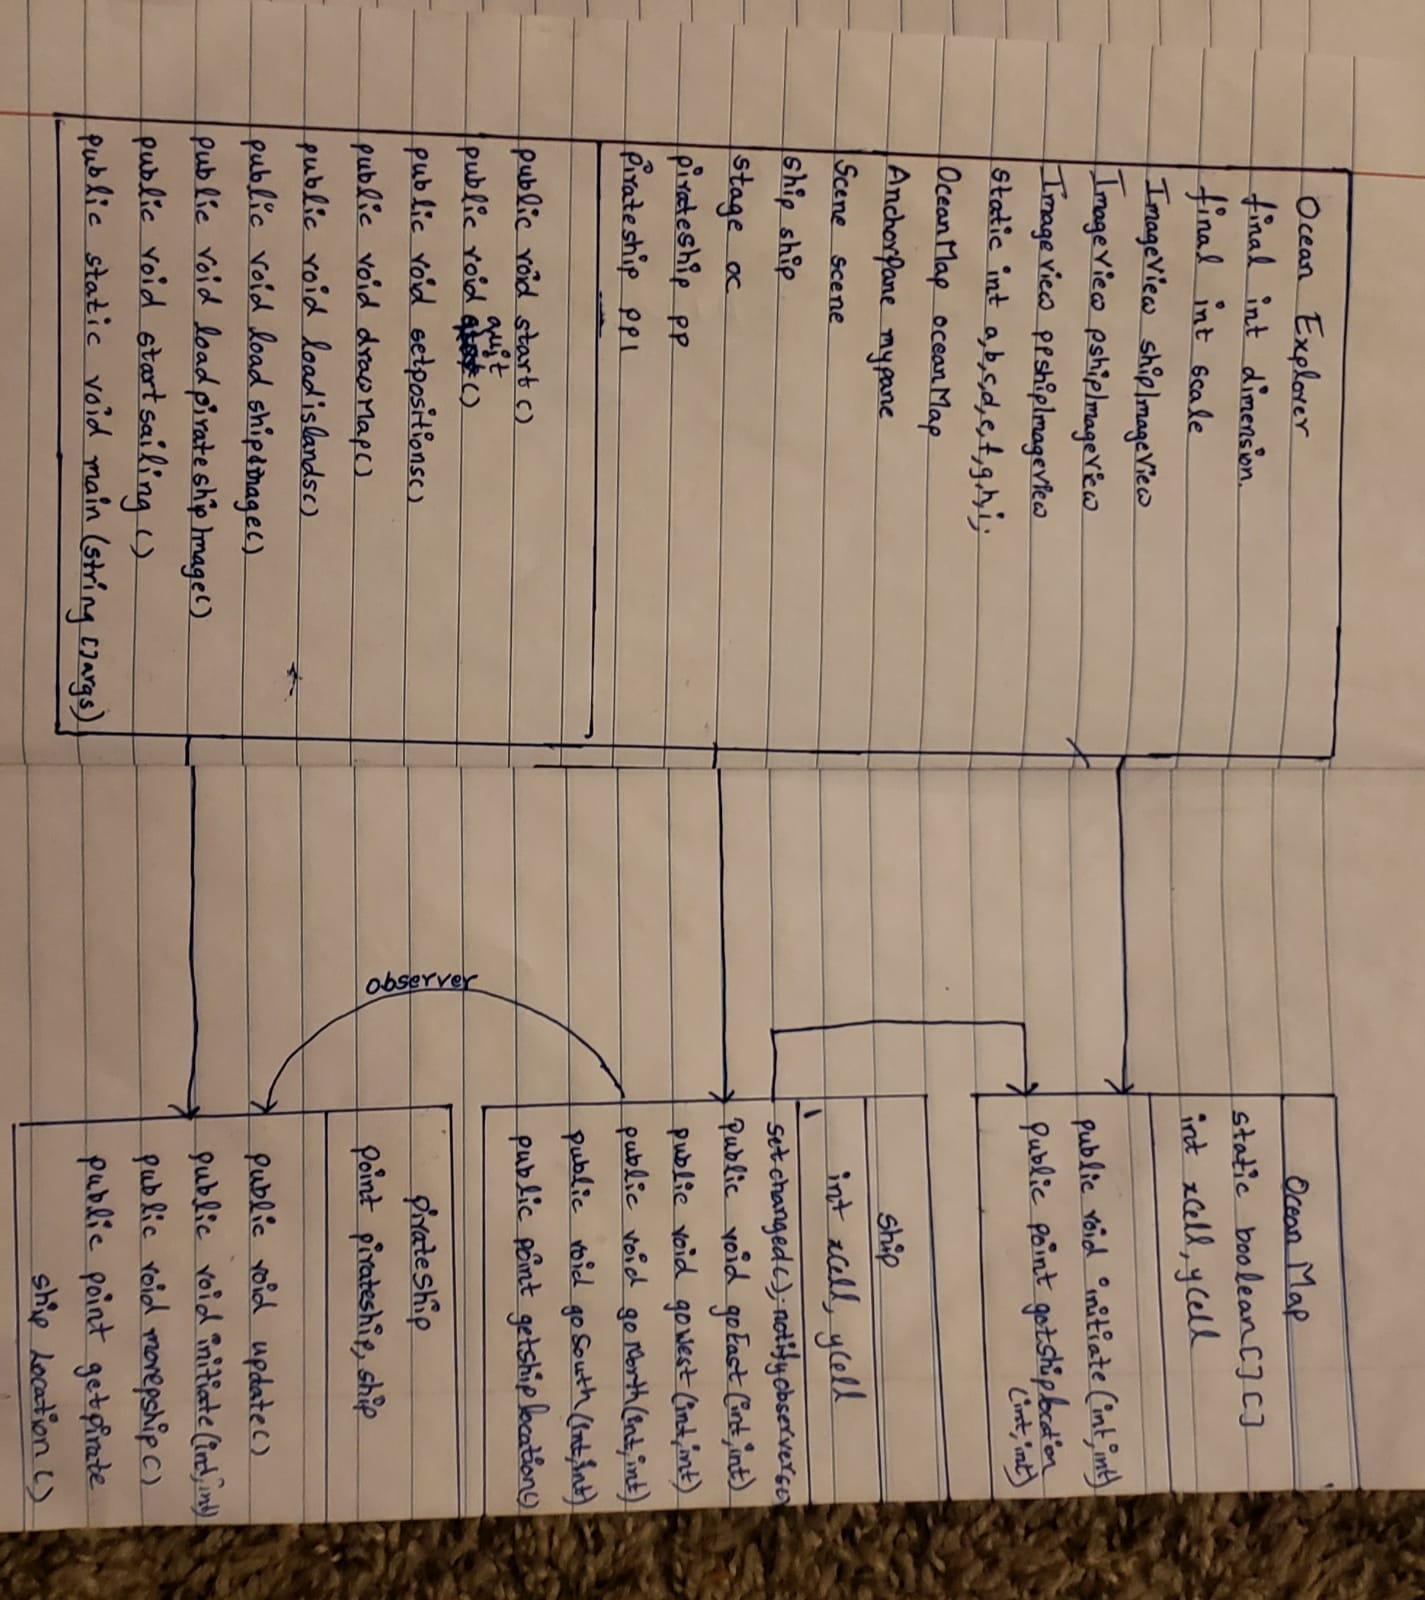 Ocean Explorer
final int dimension.
final int scale
ImageView shipImageView
ImageView pshipImageView
ImageView ppshipImageView
static int a,b,c,d,e,f,g,h,i,j.
OceanMap oceanMap
AnchorPane mypane
Scene scene
ship ship
stage oc
pirateship pp
pirateship pp1
public void start()
public void quit()
public void setpositions()
public void drawMap()
public void loadislands()
public void load shipimage()
public void loadpirateshipImage()
public void startsailing()
public static void main (string []args)
Ocean Map
static boolean[][]
int xCell, yCell
public void initiate(int,int)
public point getshiplocation
(int,int)
ship
int xCell, yCell
setchanged();notifyobservers()
public void goEast(int,int)
public void goWest(int,int)
public void goNorth(int,int)
public void goSouth(int,int)
public point getshiplocation()
observer
pirateship
point pirateship, ship
public void update()
public void initiate(int,int)
public void movepship()
public point getpirate
ship location()